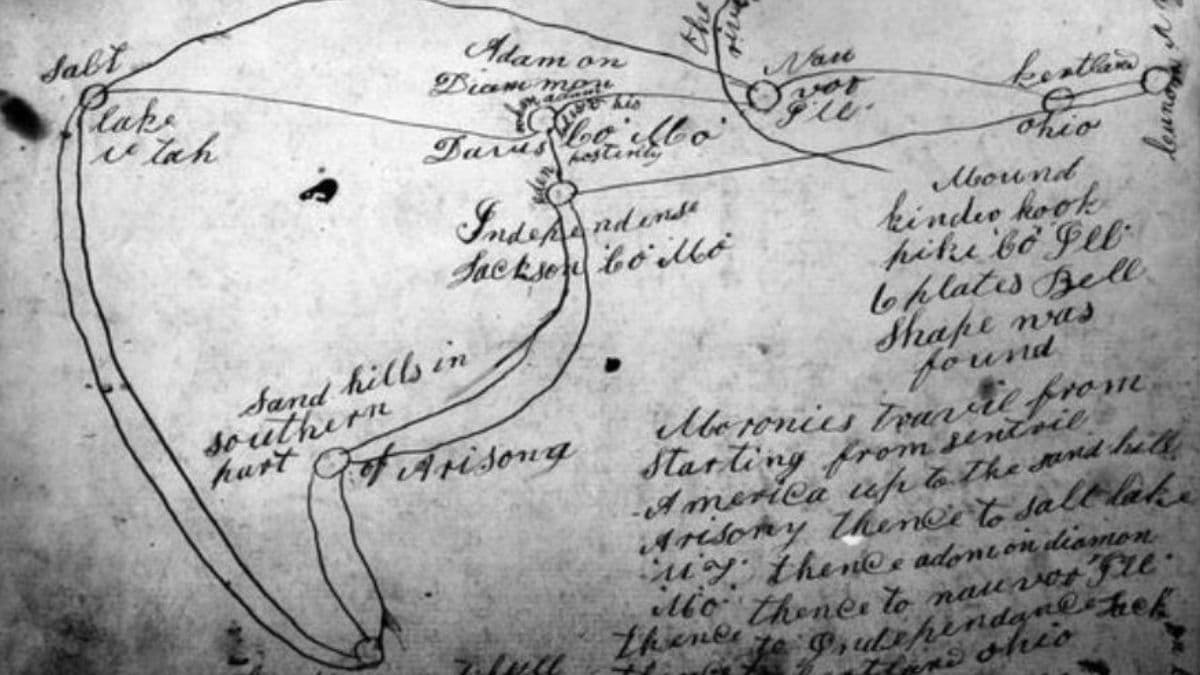 Salt
lake
u tah
Adam on
Diammon
his
Davis Co Mo
postirity
the
river
Nau
voo
Ill
kertland
ohio
Independense
Jackson Co Mo
Mound
kinder hook
pike Co Ill
6 plates Bell
Shape was
found
sand hills in
southern
part of Arisona
Moronies travil from
starting from sentril
America up to the sand hills
Arisony thence to salt lake
U T thence adom on diamon
Mo thence to nauvoo Ill
thence to Independance Jack
ohio